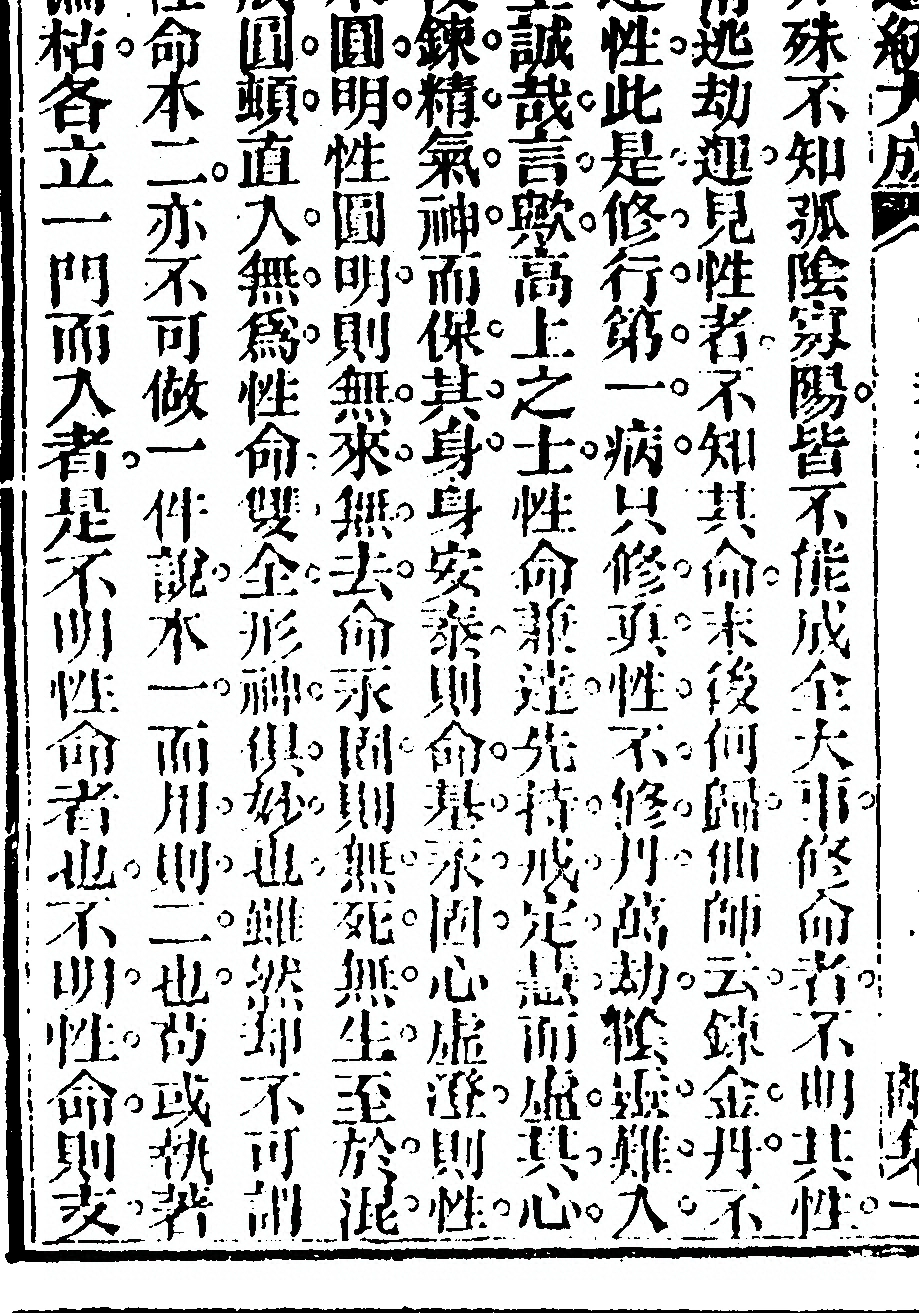 殊不知孤陰寡陽皆不能成全大事修命者不明其性
逃劫運見性者不知其命末後何歸仙師云鍊金丹不
達性此是修行第一病只修真性不修丹萬劫陰靈難入
誠哉言歟高上之士性命兼達先持戒定慧而虛其心
後鍊精氣神而保其身身安泰則命基永固心虛澄則性
本圓明性圓明則無來無去命永固則無死無生至於混
成圓頓直入無為性命雙全形神俱妙也雖然却不可謂
性命本二亦不可做一件說本一而用則二也苟或執著
偏枯各立一門而入者是不明性命者也不明性命則支